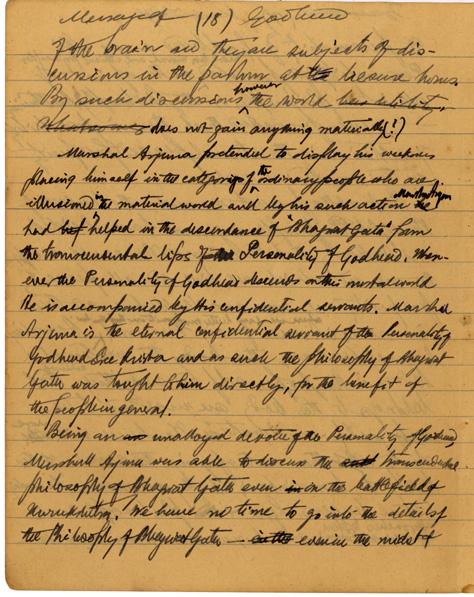 Message of (18) Godhead
of the brain and they are subjects of dis-
cussions in the parlour at leisure hours.
By such discussions however the world
does not gain anything materially (?)
Marshal Arjuna pretended to display his weakness
placing himself in the category of the ordinary people who are
illusioned in the material world and by his such action Marshal Arjun
had helped in the descendance of "Bhagwat Geeta" from
the transcendental lips of the Personality of Godhead. When-
ever the Personality of Godhead descends on this material world
He is accompanied by His confidential servants. Marshal
Arjuna is the eternal confidential servant of the Personality of
Godhead Sree Krisna and as such the philosophy of Bhagwat
Geeta was taught to him directly, for the benefit of
the people in general.
Being an unalloyed devotee of the Personality of Godhead,
Marshall Arjuna was able to discuss the transcendental
philosophy of Bhagwat Geeta even on the battlefield of
Kurukhetra. We have no time to go into the details of
the Philosophy of Bhagwat Geeta — even in the midst of